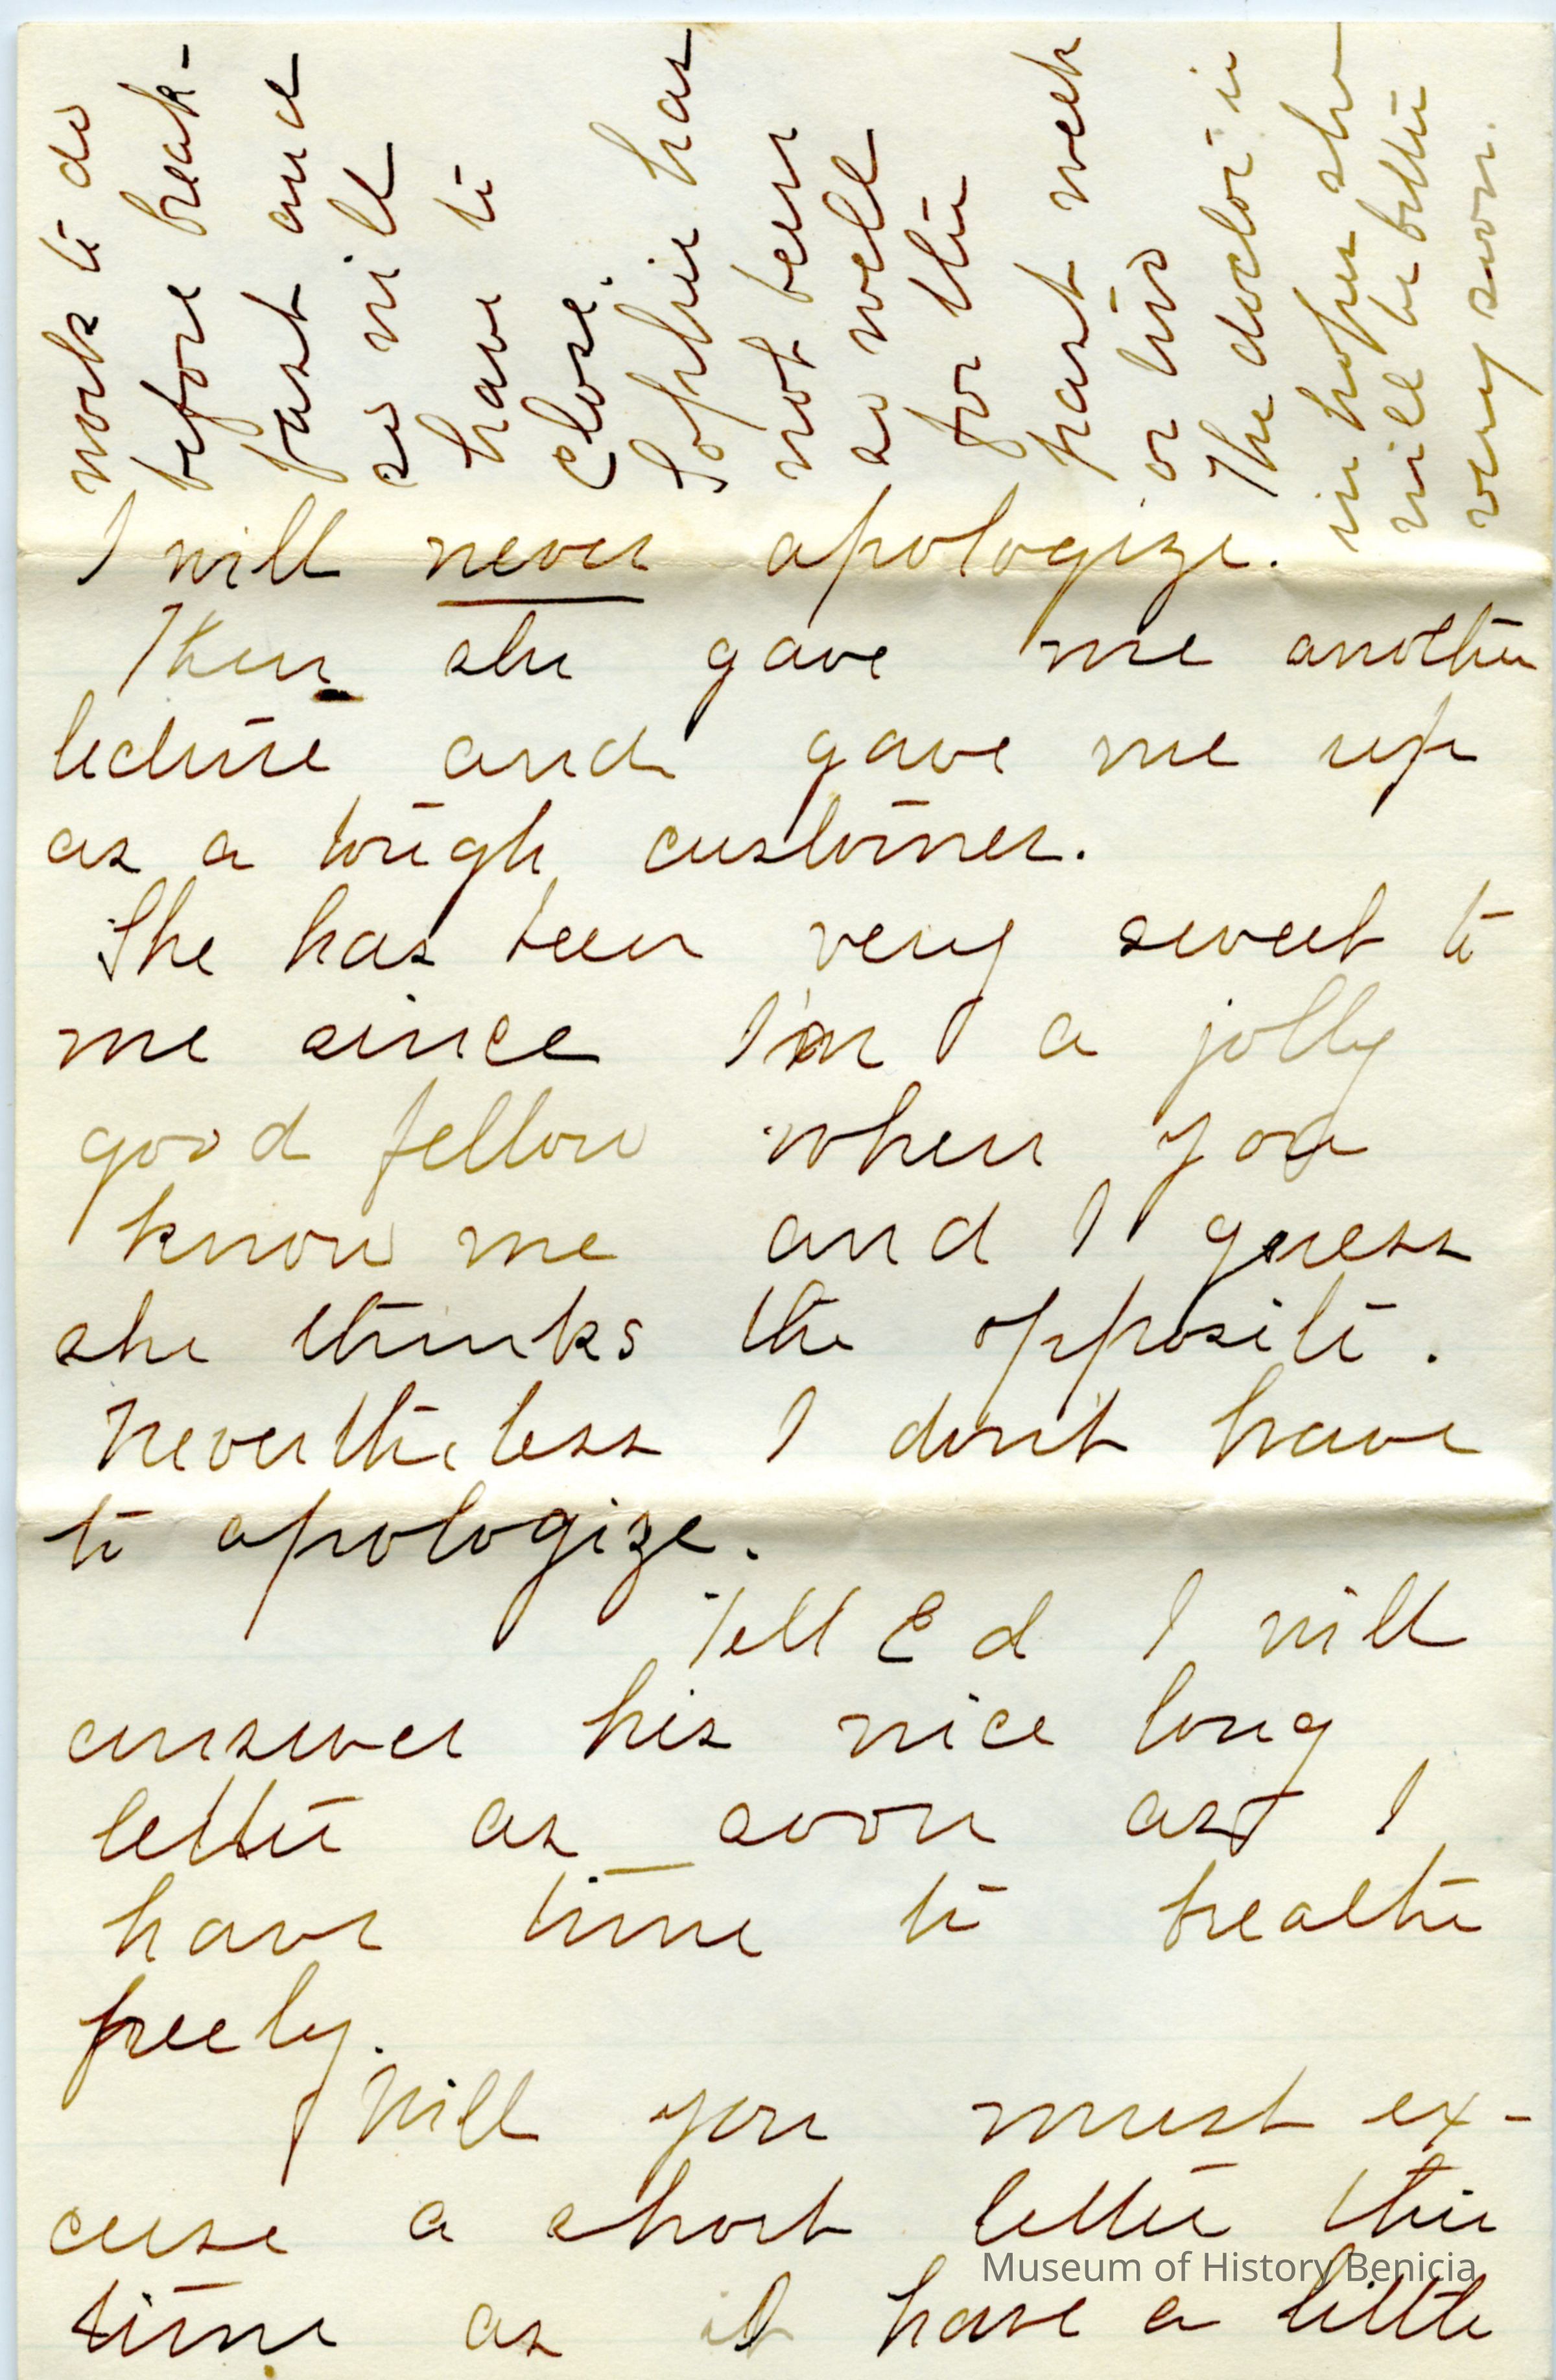 I will never apologize.
Then she gave me another
lecture and gave me up
as a tough customer.
She has been very sweet to
me since I'm a jolly
good fellow when you
know me and I guess
she thinks the opposite.
Nevertheless I don't have
to apologize.
Tell Ed I will
answer his nice long
letter as soon as I
have time to breathe
freely.
Will you must ex-
cuse a short letter this
time as I have a little
work to do
before break-
fast and
so will
have to
close.
Sophie has
not been
so well
for the
past week
or two
The doctor is
in hopes she
will be better
very soon.
Museum of History Benicia